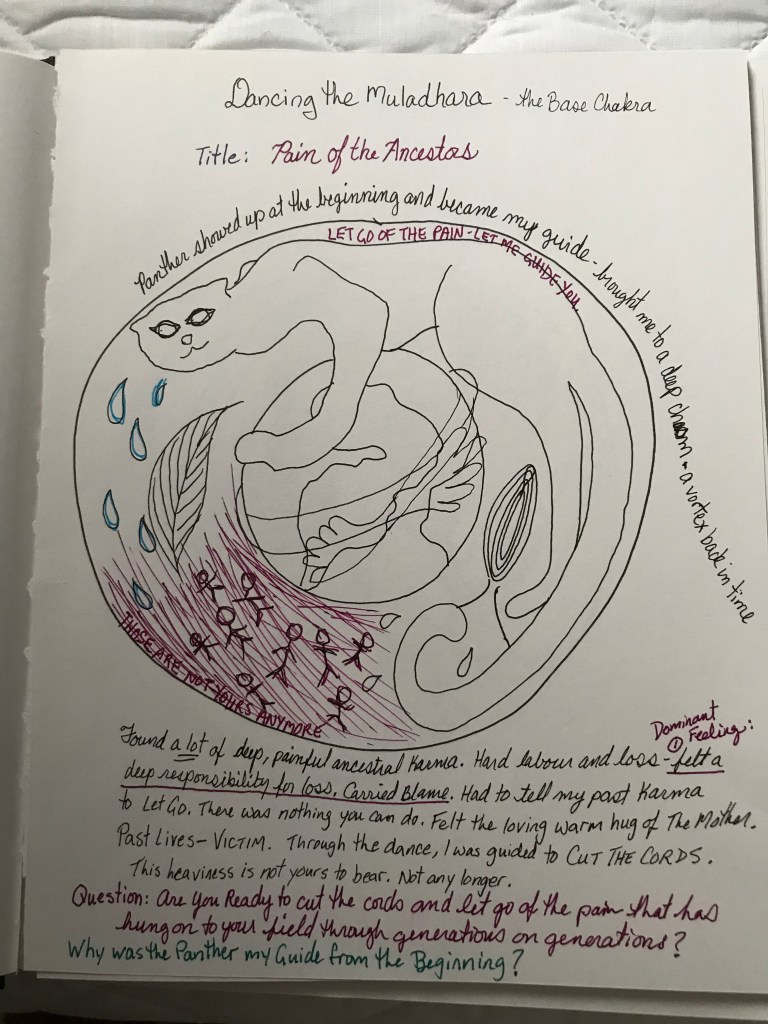 Dancing the Muladhara - the Base Chakra
Title: Pain of the Ancestors
Panther showed up at the beginning and became my guide - brought me to a deep chasm + a vortex back in time
LET GO OF THE PAIN - LET ME GUIDE YOU
THESE ARE NOT YOURS ANYMORE
Dominant
① Feeling:
Found a lot of deep, painful ancestral Karma. Hard labour and loss - felt a
deep responsibility for loss. Carried Blame. Had to tell my past Karma
to Let Go. There was nothing you can do. Felt the loving warm hug of The Mother.
Past Lives - VICTIM. Through the dance, I was guided to CUT THE CORDS.
This heaviness is not yours to bear. Not any longer.
Question: Are You Ready to cut the cords and let go of the pain that has
hung on to your field through generations on generations?
Why was the Panther my Guide from the Beginning?